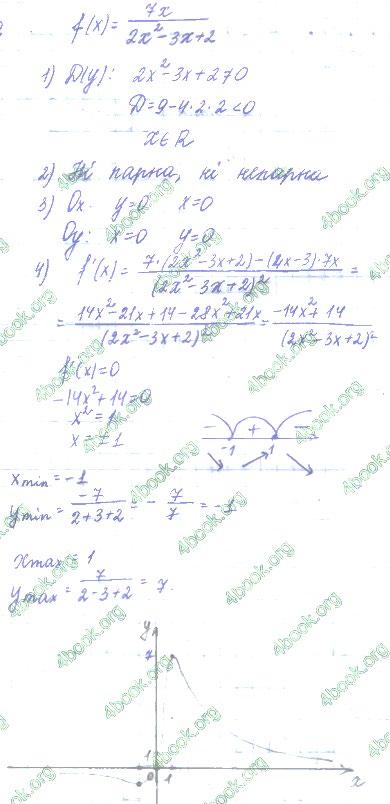 f(x) = 7x / 2x² - 3x + 2
1) D(y): 2x² - 3x + 2 ≠ 0
D = 9 - 4·2·2 < 0
x ∈ R
2) Ні парна, ні непарна
3) Ox: y = 0 x = 0
Oy: x = 0 y = 0
4) f'(x) = 7·(2x² - 3x + 2) - (4x - 3)·7x / (2x² - 3x + 2)² =
= 14x² - 21x + 14 - 28x² + 21x / (2x² - 3x + 2)² = -14x² + 14 / (2x² - 3x + 2)²
f'(x) = 0
-14x² + 14 = 0
x² = 1
x = ±1
- + -
-1 1
xmin = -1
ymin = -7 / 2+3+2 = - 7 / 7 = -1
xmax = 1
ymax = 7 / 2-3+2 = 7
y
7
1
0 1 x
4book.org